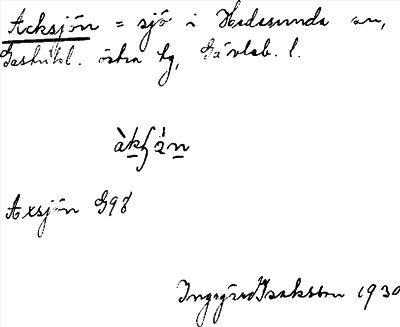 Acksjön = sjö i Hedesunda sn,
Gästrikl. östra tg, Gävleb. l.
àkʃän
Axsjön G98
Ingegärd Isaksson 1930